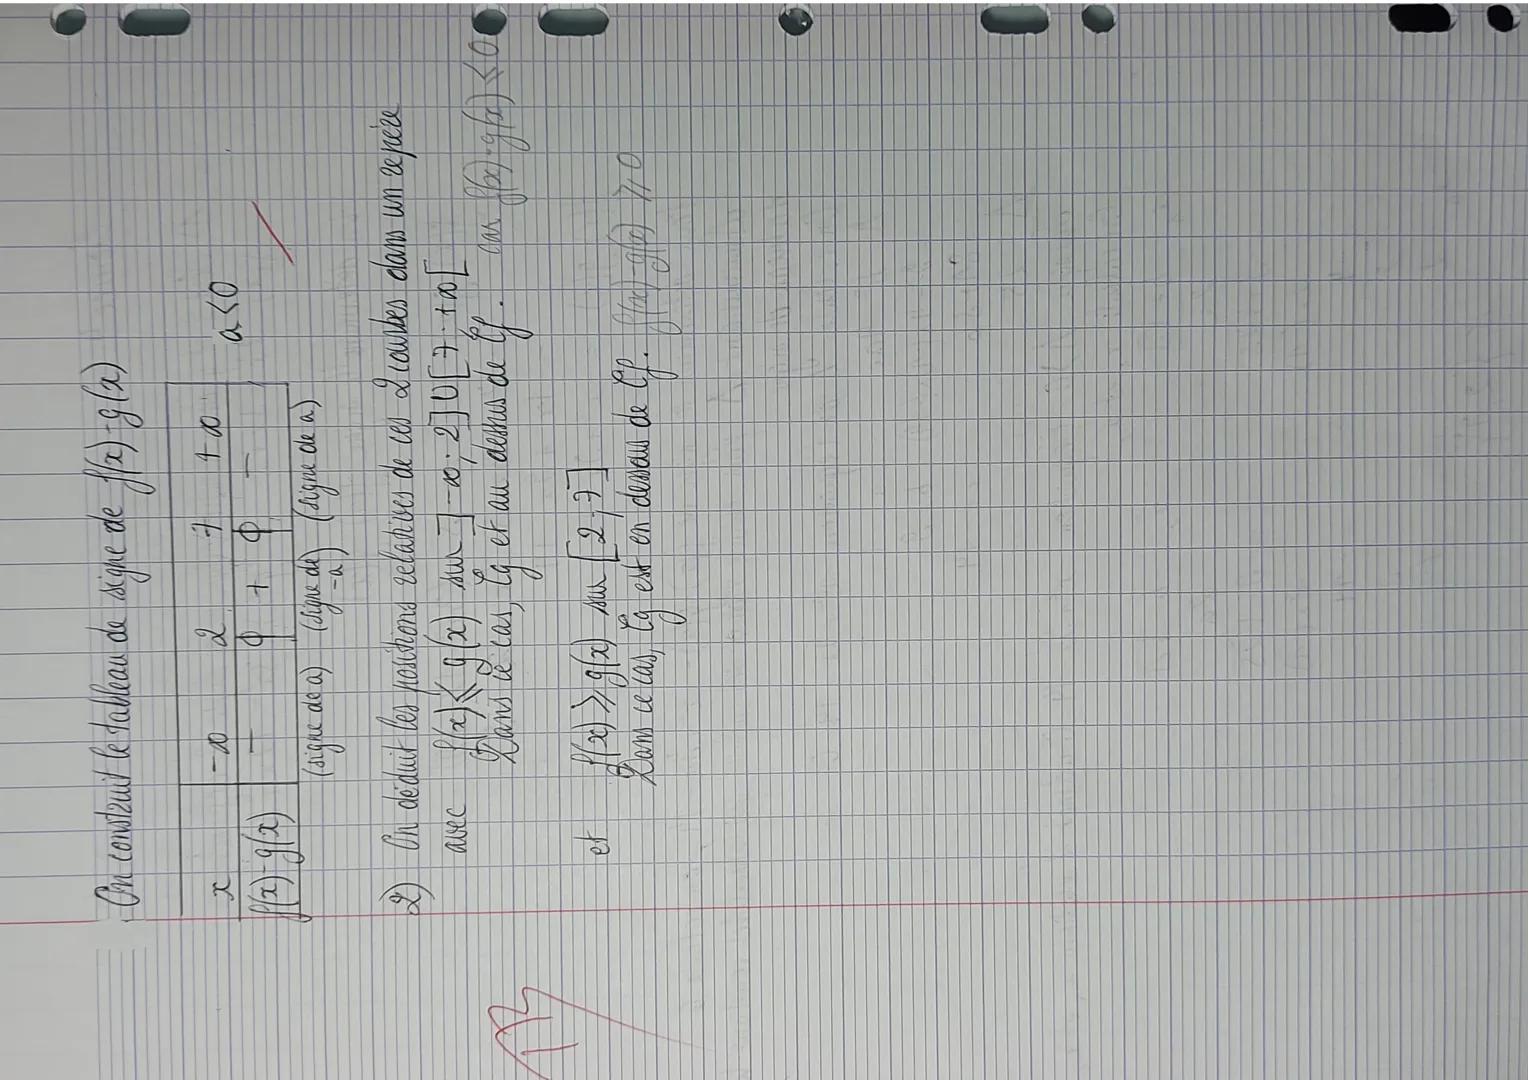 On construit le tableau de signe de f(x)-g(x)
x -∞ 2 7 +∞
f(x)-g(x) - 0 + 0 -
a<0
(signe de a) (signe de -a) (signe de a)
2) On déduit les positions relatives de ces 2 courbes dans un repère
avec f(x) ⩽ g(x) sur ]-∞;2]U[7;+∞[
Dans ce cas, Cg et au dessus de Cf. car f(x)-g(x) ⩽ 0
et f(x) ⩾ g(x) sur [2;7]
Dans ce cas, Cg est en dessous de Cf. f(x)-g(x) ⩾ 0